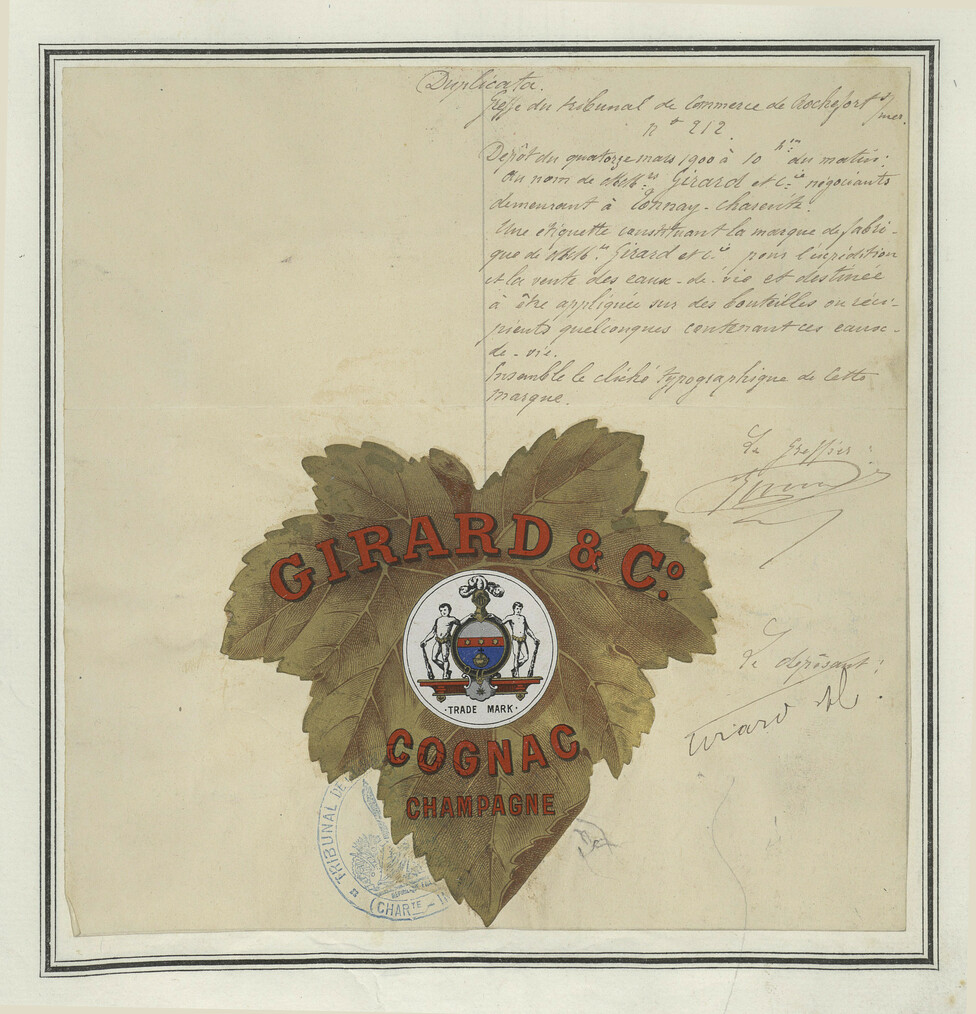 Duplicata.
Greffe du tribunal de Commerce de Rochefort s/mer.
n° 212.
Dépôt du quatorze mars 1900 à 10 h. du matin.
Au nom de MM.rs Girard et C.ie négociants
demeurant à Tonnay-Charente.
Une étiquette constituant la marque de fabri-
que de MM.rs Girard et C.ie pour l'expédition
et la vente des eaux-de-vie et destinée
à être appliquée sur des bouteilles ou réci-
pients quelconques contenant ces eaux-
de-vie.
Ensemble le cliché typographique de cette
marque.
Le Greffier:
GIRARD & Co.
TRADE MARK
COGNAC
CHAMPAGNE
Le déposant:
Girard
TRIBUNAL DE
(CHARTE-IN